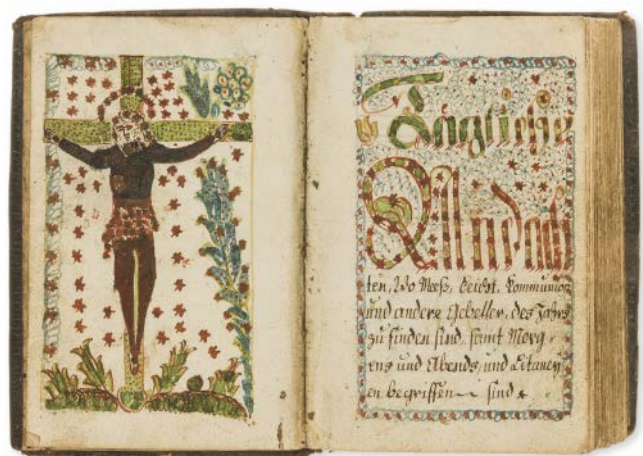 Tägliche
Andach
ten, Wo Meeß, Beicht, Kommunion
und andere Gebetter, des Jahrs
zu finden sind, samt Morg,
ens und Abends, und Litaney,
en begriffen sind